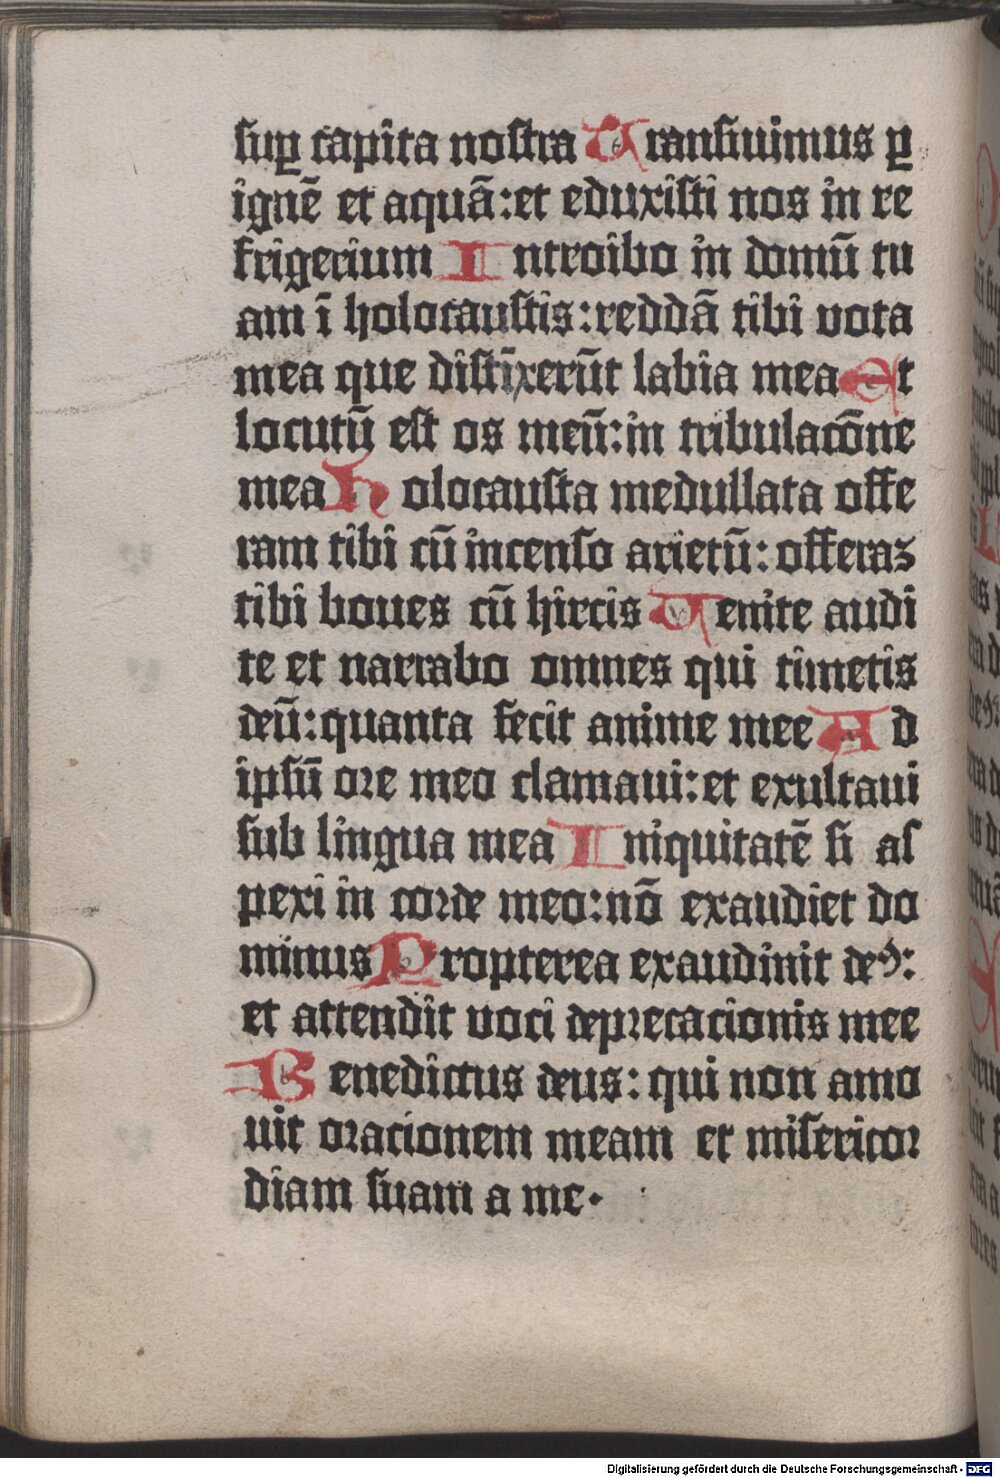 suꝑ capita nostra Transiuimus ꝑ
ignē et aquā: et eduxisti nos in re
frigerium Introibo in domū tu
am ī holocaustis: reddā tibi vota
mea que distīxerūt labia mea Et
locutū est os meū: in tribulacōne
mea Holocausta medullata offe
ram tibi cū incenso arietū: offeraꝫ
tibi boues cū hircis Venite audi
te et narrabo omnes qui timetis
deū: quanta fecit anime mee Ad
ipsū ore meo clamaui: et exultaui
sub lingua mea Iniquitatē si as
pexi in corde meo: nō exaudiet do
minus Propterea exaudinit deꝰ:
et attendit voci deprecacionis mee
Benedictus deus: qui non amo
uit oracionem meam et misericor
diam suam a me.
Digitalisierung gefördert durch die Deutsche Forschungsgemeinschaft - DFG